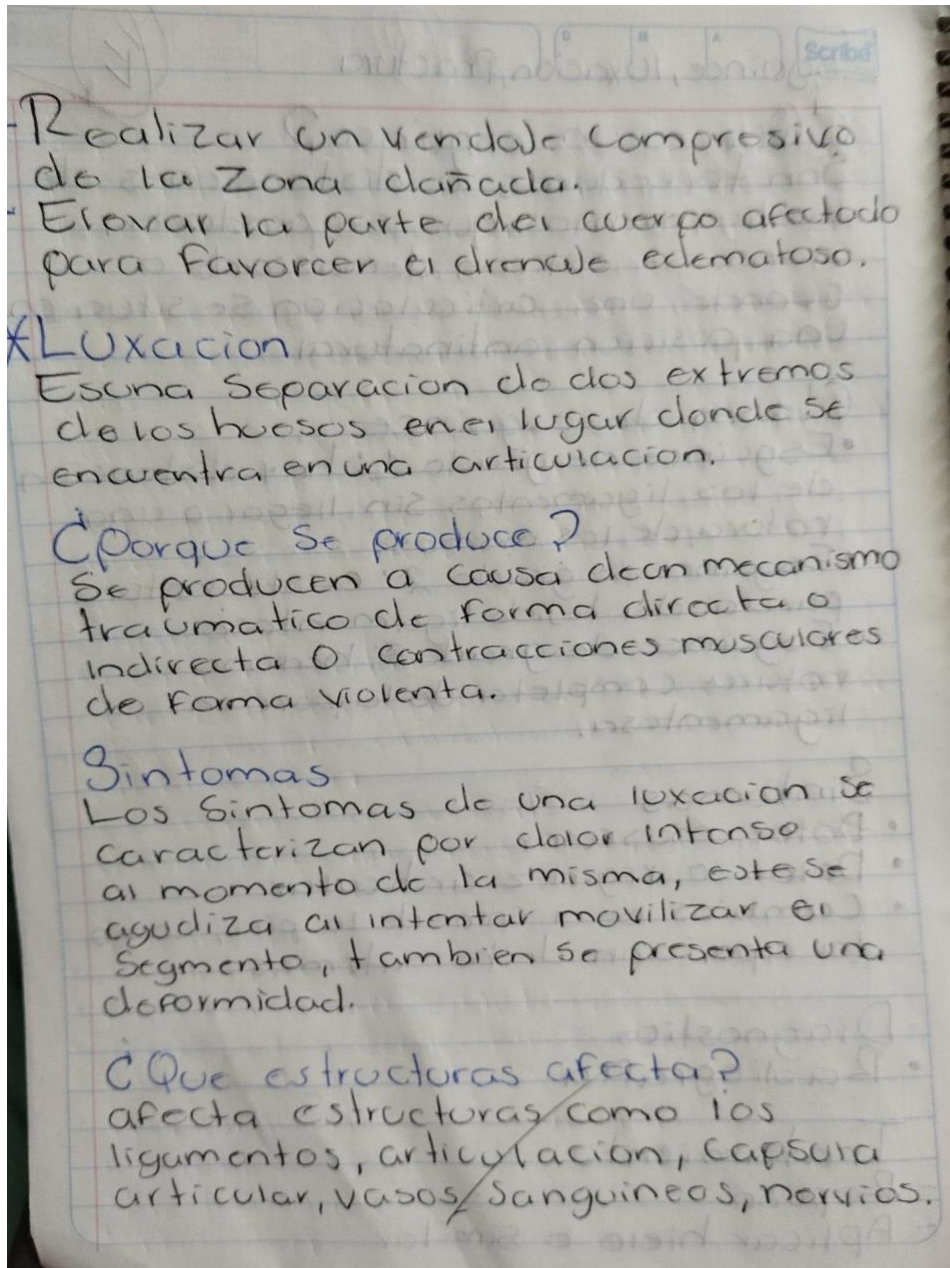 Scribe
- Realizar un vendaje compresivo
de la zona dañada.
- Elevar la parte del cuerpo afectado
para favorcer el drenaje edematoso.
*Luxacion
Es una separacion de dos extremos
de los huesos en el lugar donde se
encuentra en una articulacion.
¿Porque se produce?
Se producen a causa de un mecanismo
traumatico de forma directa o
indirecta o contracciones musculares
de forma violenta.
Sintomas
Los sintomas de una luxacion se
caracterizan por dolor intenso
al momento de la misma, este se
agudiza al intentar movilizar el
segmento, tambien se presenta una
deformidad.
¿Que estructuras afecta?
afecta estructuras como los
ligamentos, articulacion, capsula
articular, vasos sanguineos, nervios.